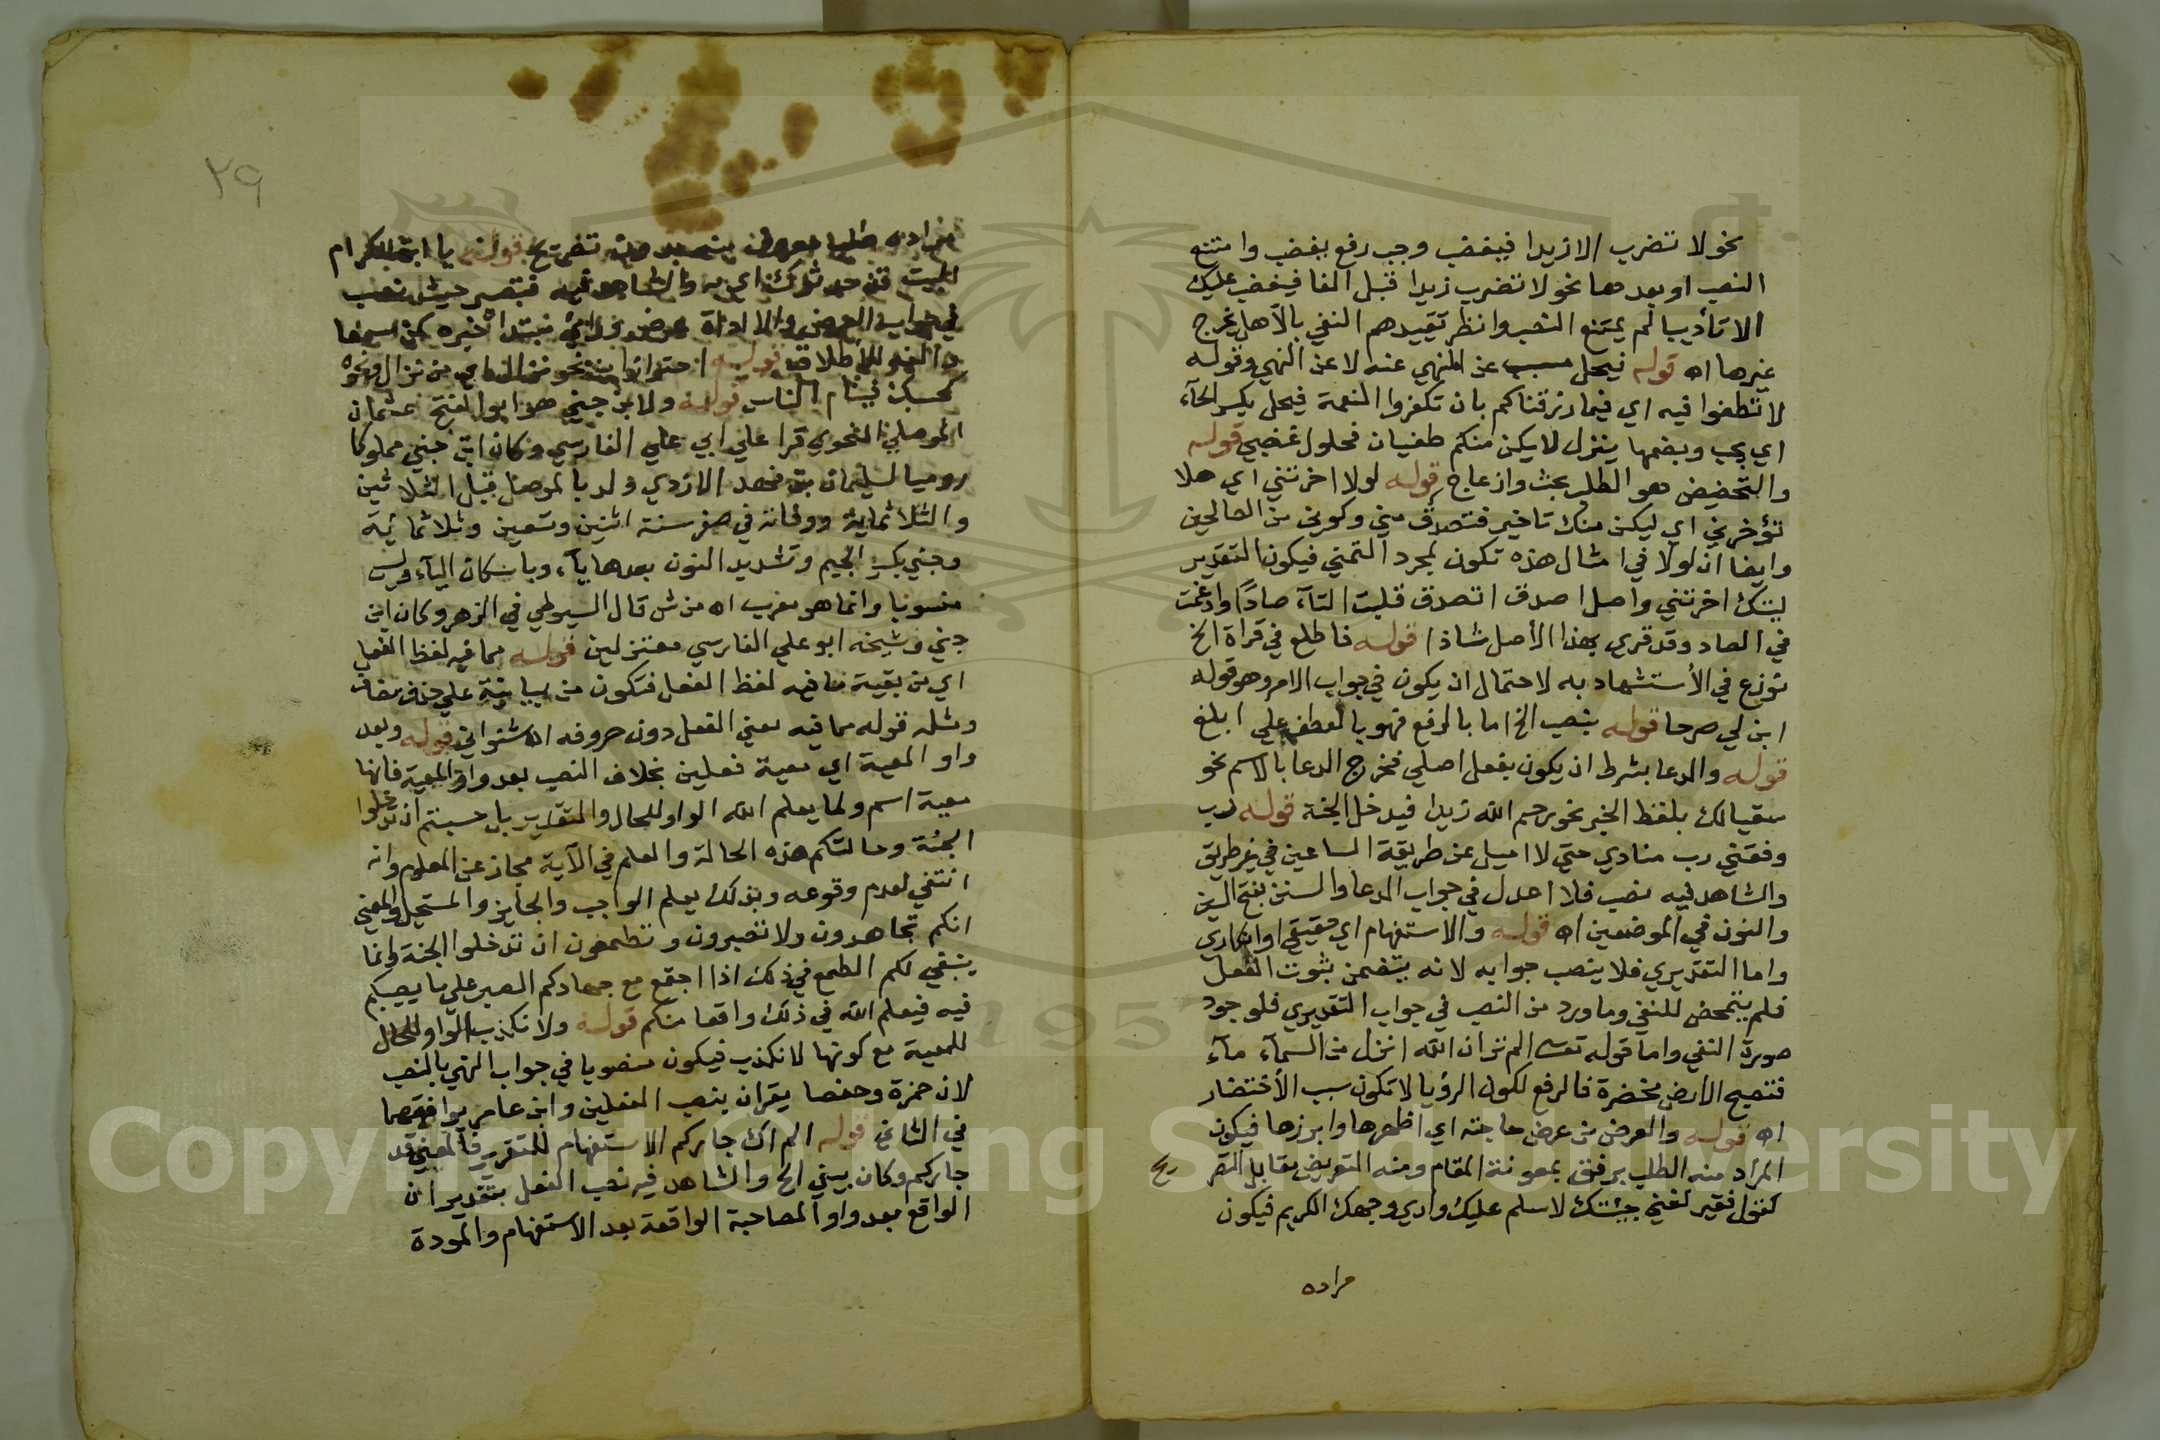 نحو لا تضرب الا زيدا فيغضب وجب رفع يغضب وامتنع
النصب او بعدها نحو لا تضرب زيدا قبل الفا فيغضب عليك
الا تأديبا لم يمتنع النصب وانظر تقييدهم النفي بالاهل يخرج
غيرها اه قوله فيحل مسبب عن المنهي عنه لا عن النهي وقوله
لا تطغوا فيه اي فيما رزقناكم بان تكفروا النعمة فيحل بكسر الحآء
اي يجب وبضمها ينزل لا يكن منكم طغيان فحلول غضبي قوله
والتحضيض هو الطلب بحث وازعاج قوله لولا اخرتني اي هلا
تؤخرني اي ليكن منك تاخير فتصدق مني وكوني من الصالحين
وايضا ان لولا في امثال هذه تكون لمجرد التمني فيكون التقدير
ليتك اخرتني واصل اصدق اتصدق قلبت التآء صادًا وادغمت
في الصاد وقد قري بهذا الأصل شاذا قوله فاطلع في قراة الخ
نوزع في الأستشهاد به لاحتمال ان يكون في جواب الامر وهو قوله
ابن لي صرحا قوله بنصب الخ اما بالرفع فهو بالعطف علي ابلغ
قوله والدعا بشرط ان يكون بفعل اصلي فخرج الدعا بالاسم نحو
سقيا لك بلفظ الخبر نحو رحم الله زيدا فيدخل الجنة قوله رب
وفقني رب منادي حتي لا اميل عن طريقة الساعين في غير طريق
والشاهد فيه نصب فلا اعدل في جواب الدعا والسنن بفتح السين
والنون في الموضعين اه قوله والاستفهام اي حقيقي او انكاري
واما التقديري فلا ينصب جوابه لانه يتضمن ثبوت الفعل
فلم يتمحض للنفي وما ورد من النصب في جواب التقديري فلوجود
صورة النفي واما قوله تعالى الم تر ان الله انزل من السمآء مآء
فتصبح الارض مخضرة فالرفع لكون الرؤيا لا تكون سبب الأخضرار
اه قوله والعرض من عرض حاجته اي اظهرها وابرزها فيكون
المراد منه الطلب برفق بمعونة المقام ومنه التعريض يقابل التصريح
كقول فقير لغني جيئتك لاسلم عليك واري وجهك الكريم فيكون
مراده
٢٩
مراده طلبا قوله يا ابن الكرام
اي به والشاهد فيه فتبصر حيث نصب
في جواب العرض
قوله
الناس قوله ولابن جني هو ابو الفتح عثمان
الموصلي النحوي قرا علي ابي علي الفارسي وكان ابن جني مملوكا
روميا لسليمان بن فهد الازدي ولد بالموصل قبل الثلاثين
والثلاثماية ووفاته في صفر سنة اثنين وتسعين وثلاثماية
وجني بكسر الجيم وتشديد النون بعدها يآء وباسكان اليآء وليس
منسوبا وانما هو معرب اه من ش قال السيوطي في المزهر وكان ابن
جني وشيخه ابو علي الفارسي معتزلين قوله مما فيه لفظ الفعل
اي من بقية ما فيه لفظ الفعل فتكون من بيانية علي حذف مضاف
ومثله قوله مما فيه معني الفعل دون حروفه اه شنواني قوله وبعد
واو المعية اي معية فعلين بخلاف النصب بعد واو المعية فانها
معية اسم ولما يعلم الله الواو للحال والتقدير بل حسبتم ان تدخلوا
الجنة وحالتكم هذه الحالة والعلم في الآية مجاز عن المعلوم وانه
انتفي لعدم وقوعه وبذلك يعلم الواجب والجايز والمستحيل والمعني
انكم تجاهدون ولا تصبرون وتطمعون ان تدخلوا الجنة وانما
ينبغي لكم الطمع في ذلك اذا اجتمع مع جهادكم الصبر علي ما يصيبكم
فيه فيعلم الله في ذلك واقعا منكم قوله ولا نكذب الواو للحال
للمعية مع كونها لا نكذب فيكون منصوبا في جواب النهي بالنصب
لان حمزة وحفصا يقران بنصب الفعلين وابن عامر يوافقهما
في الثاني قوله الم اك جاركم الاستفهام للتقرير فالمعني قد
جاركم وكان بيني الخ والشاهد فيه نصب الفعل بتقدير ان
الواقع بعد واو المصاحبة الواقعة بعد الاستفهام والمودة